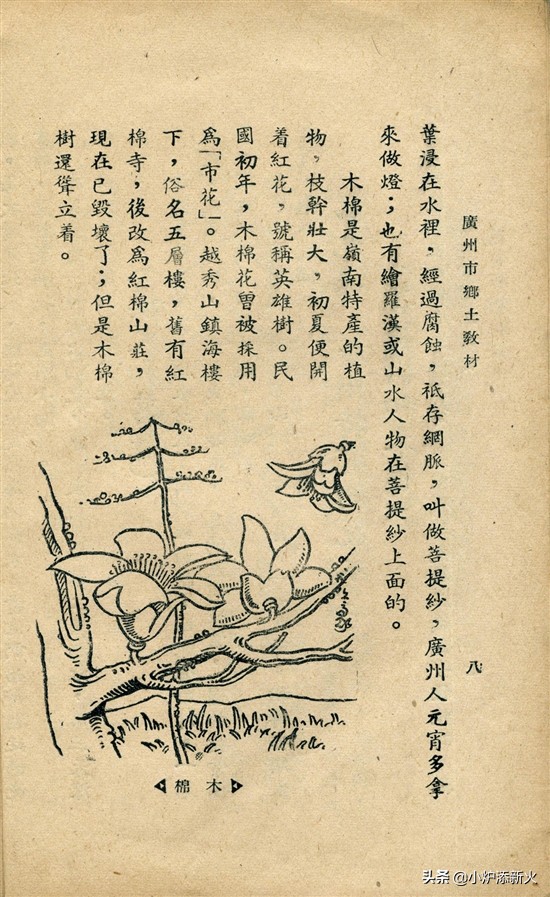 廣州市鄉土教材
八
葉浸在水裡，經過腐蝕，祗存網脈，叫做菩提紗，廣州人元宵多拿
來做燈；也有繪羅漢或山水人物在菩提紗上面的。
木棉是嶺南特產的植
物，枝幹壯大，初夏便開
着紅花，號稱英雄樹。民
國初年，木棉花曾被採用
為「市花」。越秀山鎮海樓
下，俗名五層樓，舊有紅
棉寺，後改為紅棉山莊，
現在已毀壞了；但是木棉
樹還聳立着。
木棉
头条 @小炉添新火